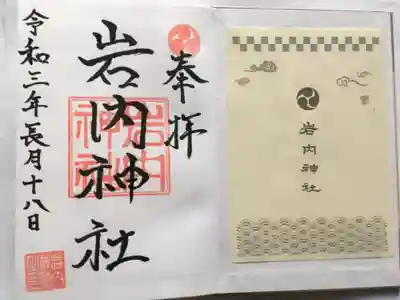 奉拝
岩内神社
岩内神社
令和三年長月十八日
岩内神社